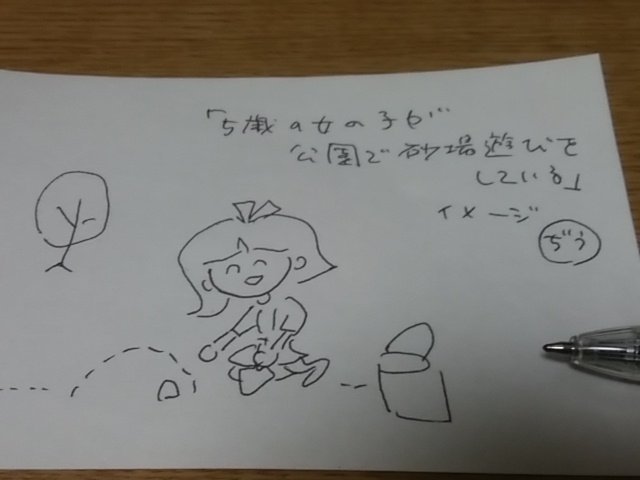 「5歳の女の子が
公園で砂場遊びを
している」
イメージ
ぢう